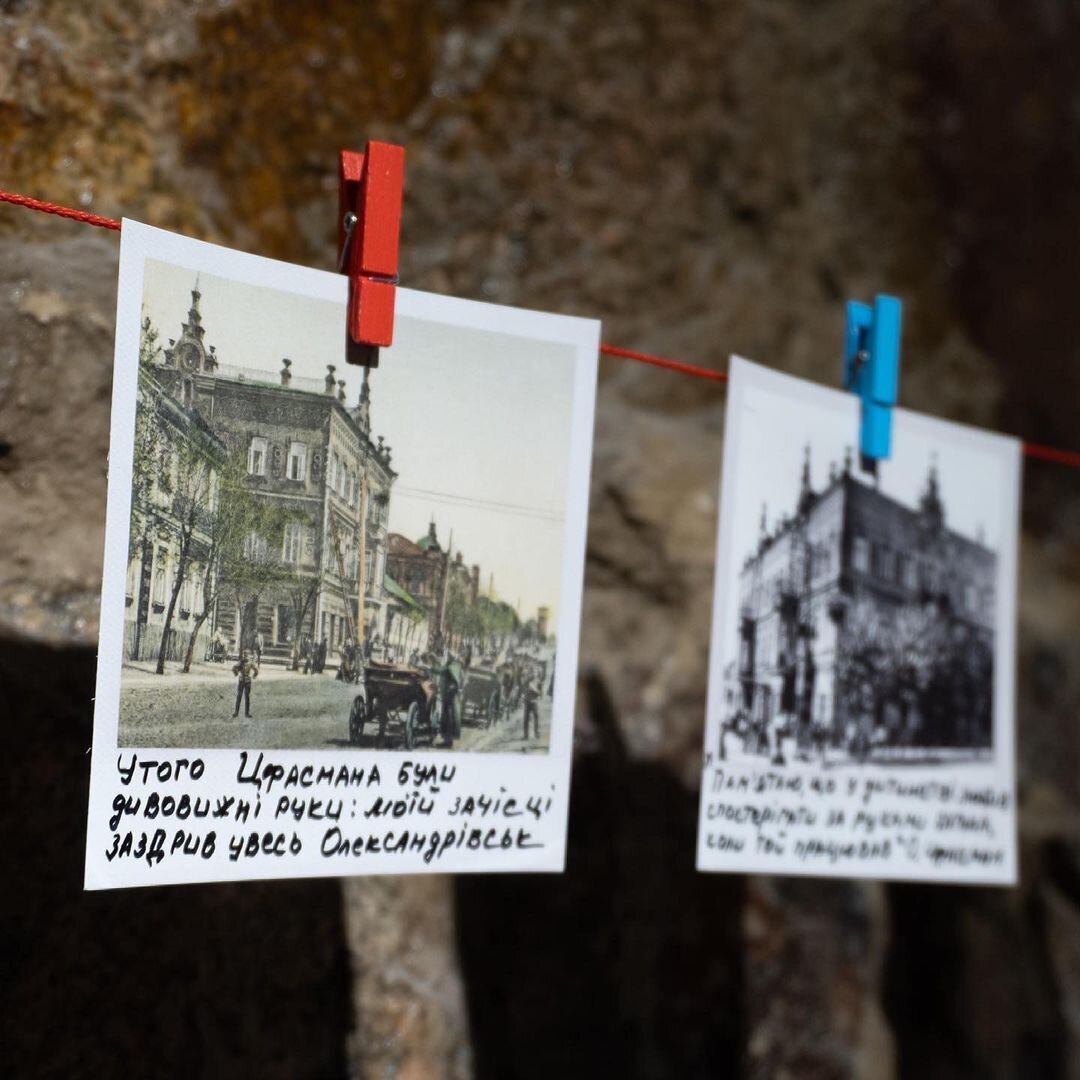 У того Цфасмана були
дивовижні руки: моїй зачісці
заздрив увесь Олександрівськ
Пам'ятаю, що у дитинстві
спостерігати за руками
коли той працював